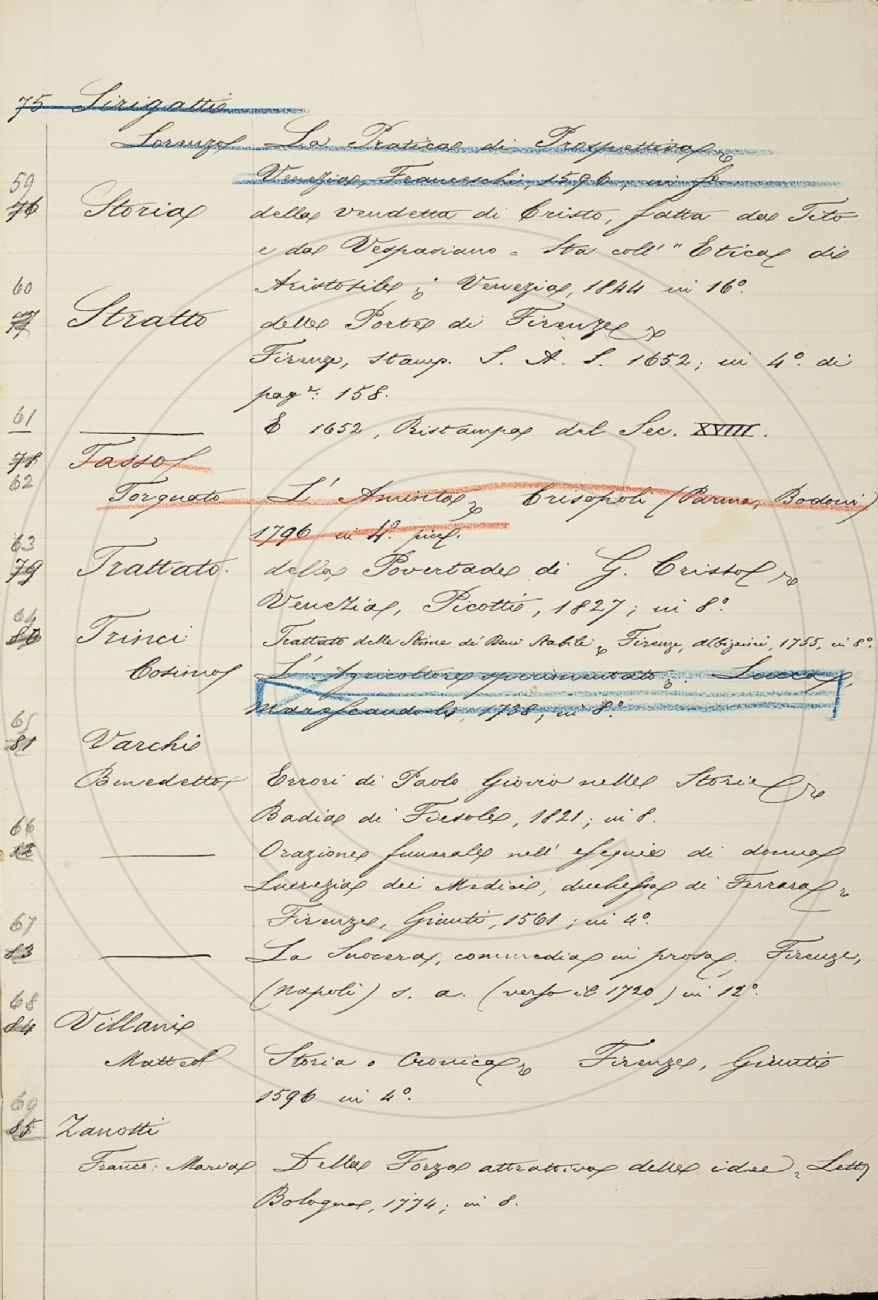 75 Sirigatti
Lorenzo La Pratica di Prospettiva,
Venezia, Franceschi, 1596, in f.
59
76 Storia della vendetta di Cristo, fatta da Tito
e da Vespasiano = Sta coll' "Etica di
Aristotile"; Venezia, 1844 in 16°.
60
77 Stratto delle Porte di Firenze,
Firenze, stamp. S. A. S. 1652; in 4°. di
pag.e: 158.
61 — E 1652, Ristampa del Sec. XVIII.
78 Tasso
62
Torquato L' Aminta, Crisopoli (Parma, Bodoni)
1796 in 4°. picc.
63
79 Trattato della Povertade di G. Cristo,
Venezia, Picotti, 1827; in 8°.
64
80 Trinci Trattato delle Stime de' Beni Stabili, Firenze, Albizzini, 1755, in 8°.
Cosimo L' Agricoltore sperimentato, Lucca,
Marescandoli, 1738; in 8°.
65
81 Varchi
Benedetto Errori di Paolo Giovio nelle Storie,
Badia di Fiesole, 1821; in 8.
66
82 — Orazione funerale nell' esequie di donna
Lucrezia dei Medici, duchessa di Ferrara,
Firenze, Giunti, 1561; in 4°.
67
83 — La Suocera, commedia in prosa, Firenze,
(Napoli) s. a. (verso il 1720) in 12°.
68
84 Villani
Matteo Storia o Cronica, Firenze, Giunti
1596 in 4°.
69
85 Zanotti
Franc: Maria Della Forza attrattiva delle idee, Lett,
Bologna, 1774; in 8.